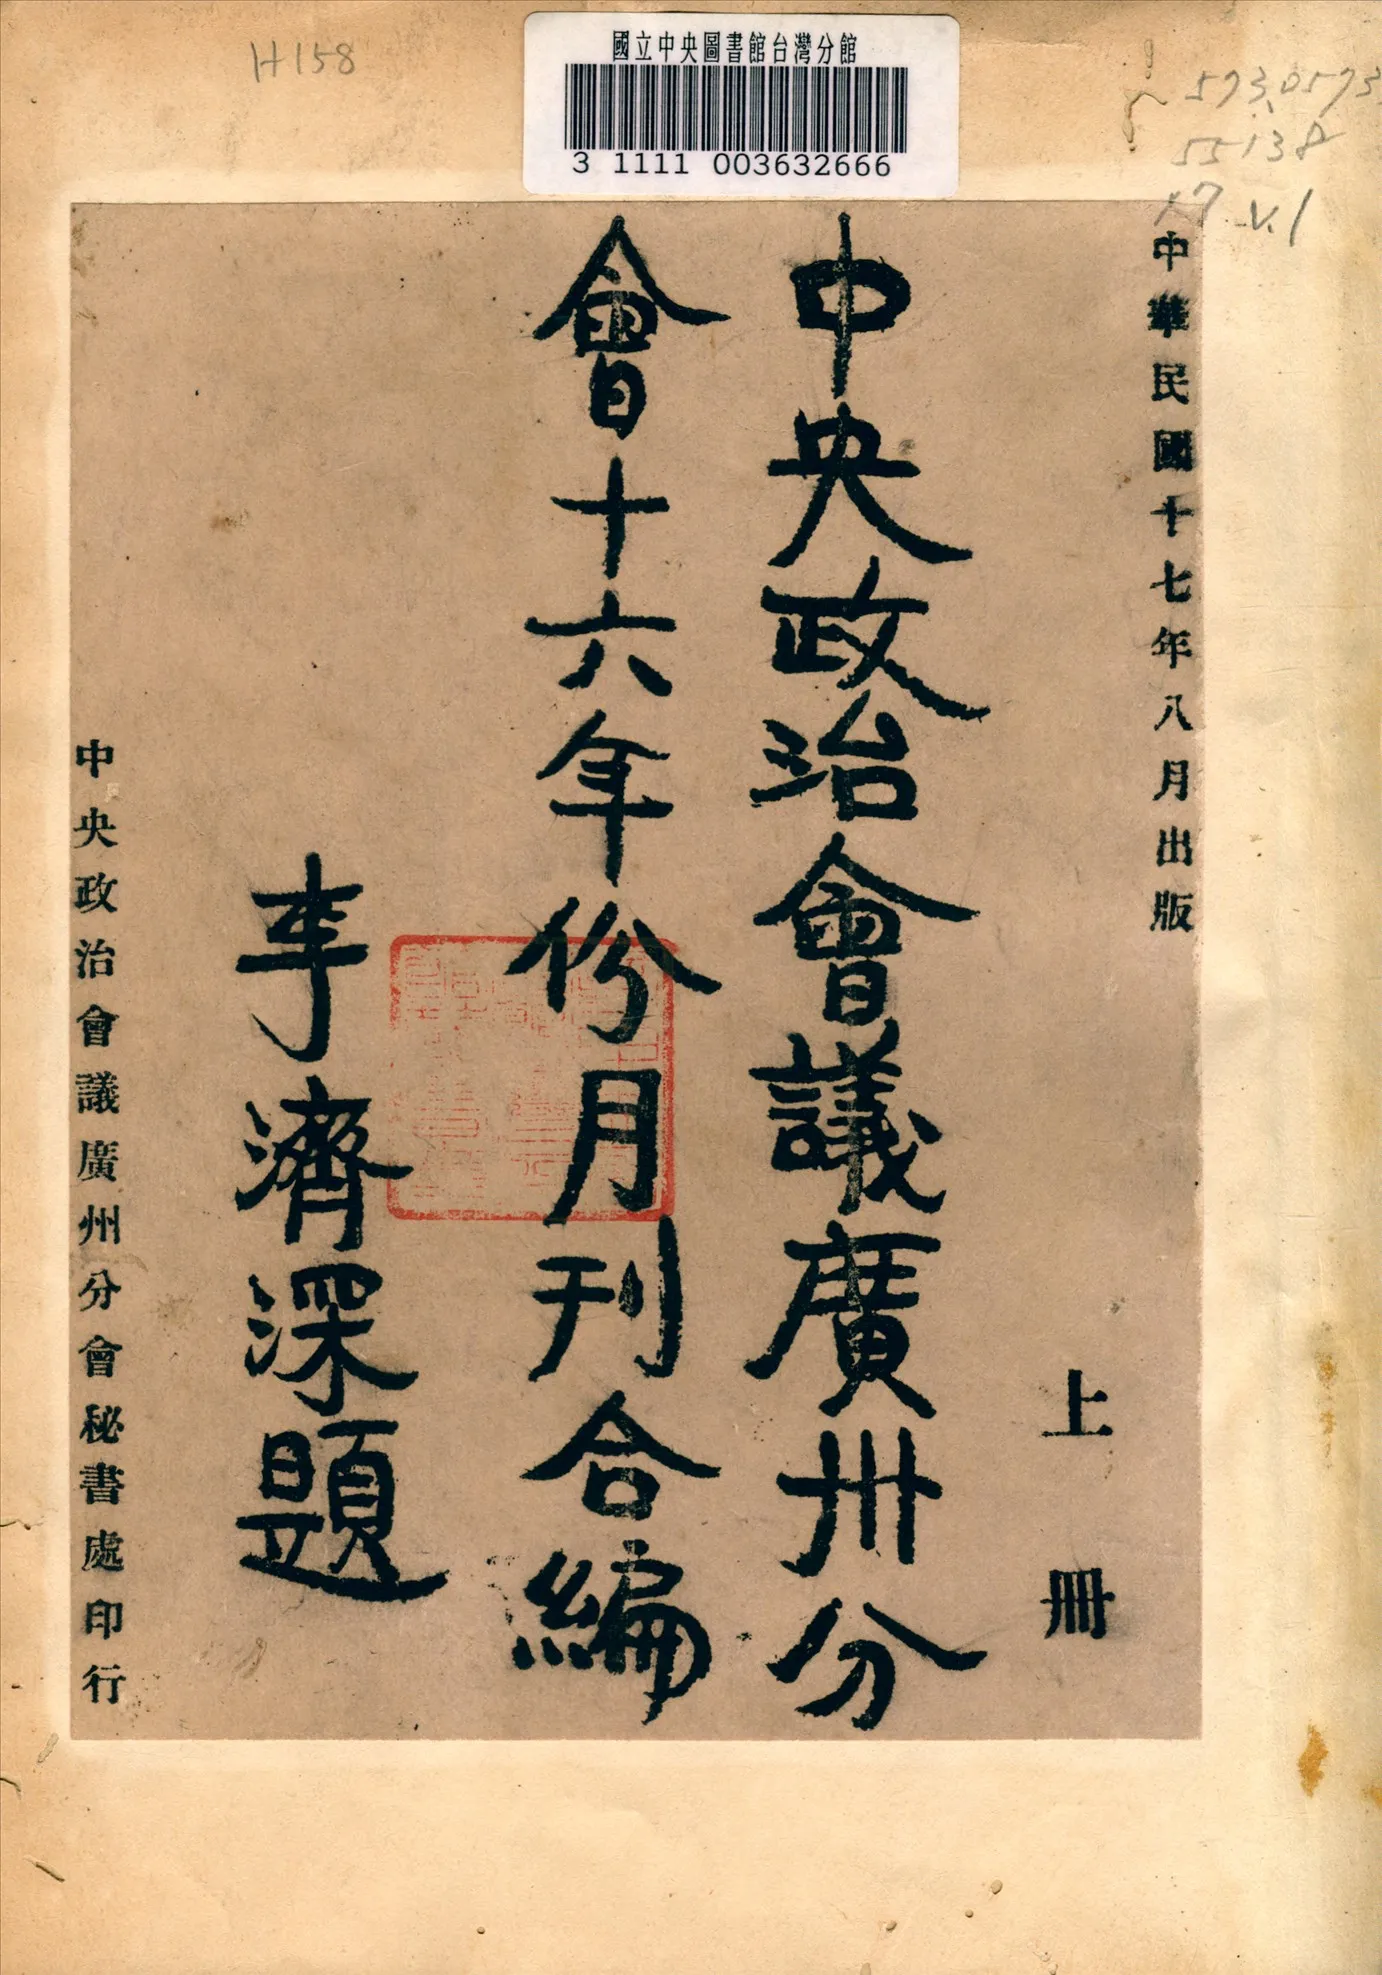 H158
國立中央圖書館台灣分館
3 1111 003632666
573.0573
55138
17 v.1
中華民國十七年八月出版
上冊
中央政治會議廣州分
會十六年份月刊合編
李濟深題
中央政治會議廣州分會秘書處印行